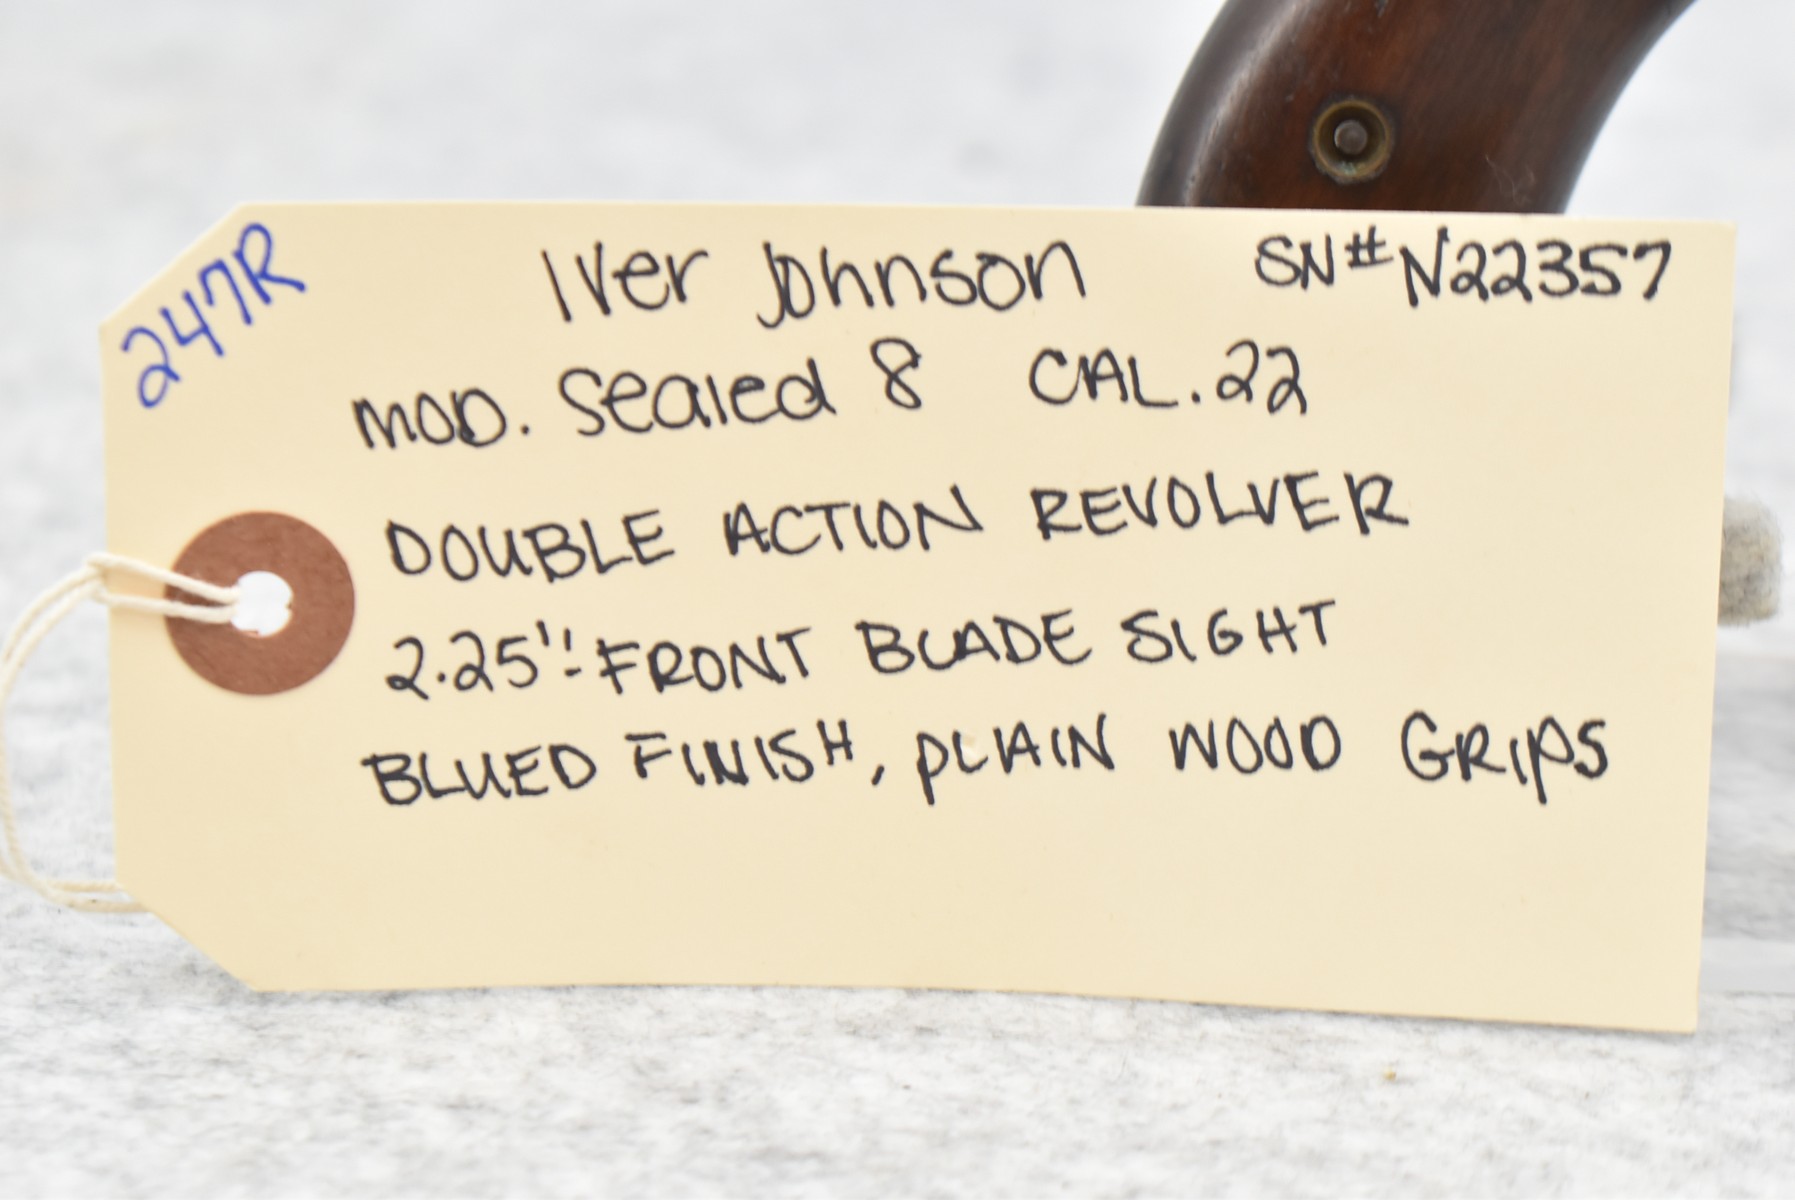 247R
Iver Johnson SN# N22357
MOD. Sealed 8 CAL. 22
DOUBLE ACTION REVOLVER
2.25"-FRONT BLADE SIGHT
BLUED FINISH, PLAIN WOOD GRIPS